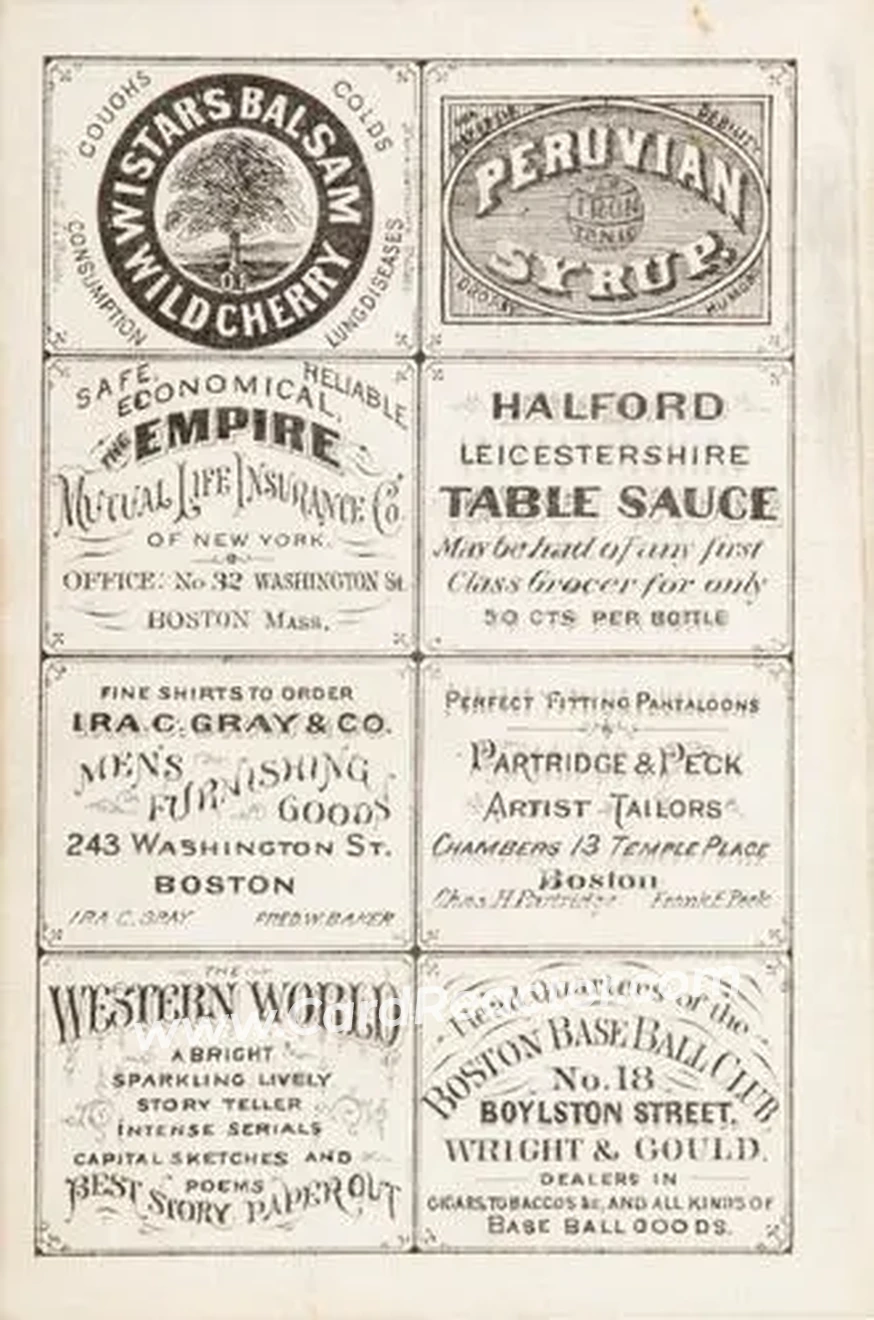 COUGHS
COLDS
WISTAR'S BALSAM
OF
WILD CHERRY
CONSUMPTION
LUNG DISEASES
DEBILITY
PERUVIAN
IRON
TONIC
SYRUP.
DROPSY
HUMORS
SAFE,
ECONOMICAL,
RELIABLE
THE EMPIRE
MUTUAL LIFE INSURANCE Co.
OF NEW YORK.
OFFICE: No 32 WASHINGTON St.
BOSTON MASS.
HALFORD
LEICESTERSHIRE
TABLE SAUCE
May be had of any first
Class Grocer for only
50 CTS PER BOTTLE
FINE SHIRTS TO ORDER
IRA. C. GRAY & CO.
MEN'S FURNISHING
GOODS
243 WASHINGTON ST.
BOSTON
IRA C. GRAY FRED. W. BAKER
PERFECT FITTING PANTALOONS
PARTRIDGE & PECK
ARTIST TAILORS
CHAMBERS 13 TEMPLE PLACE
Boston
Chas. H. Partridge Frank F. Peck
THE
WESTERN WORLD
A BRIGHT
SPARKLING LIVELY
STORY TELLER
INTENSE SERIALS
CAPITAL SKETCHES AND
POEMS
BEST STORY PAPER OUT
Head Quarters of the
BOSTON BASE BALL CLUB
No. 18
BOYLSTON STREET.
WRIGHT & GOULD.
DEALERS IN
CIGARS, TOBACCOS &c, AND ALL KINDS OF
BASE BALL GOODS.